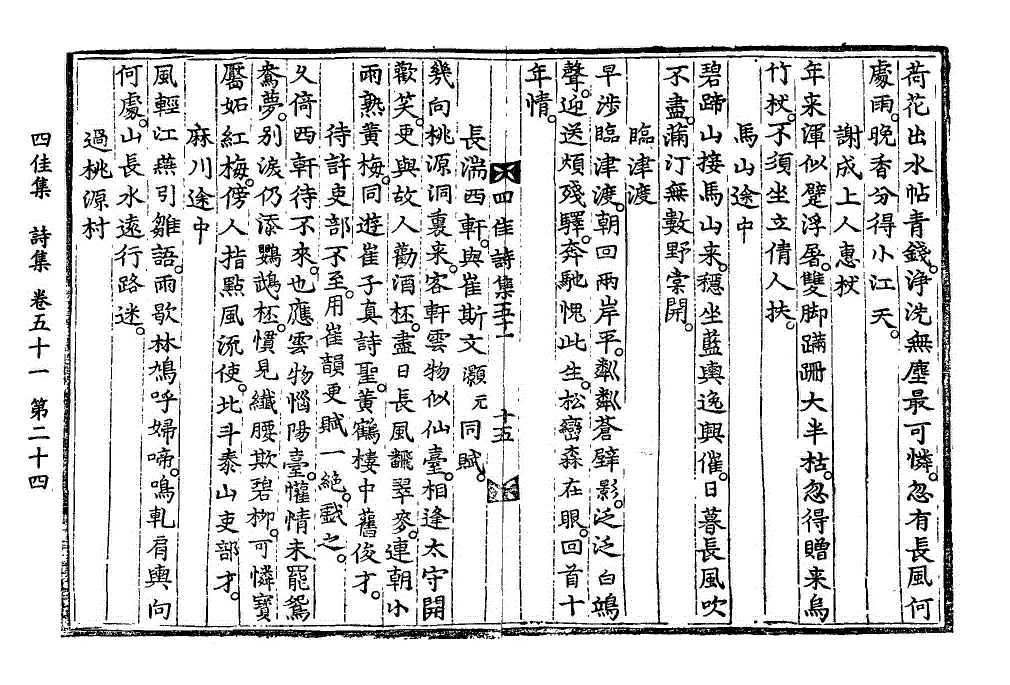 荷花出水帖青錢。淨洗無塵最可憐。忽有長風何
處雨。晚香分得小江天。
謝成上人惠杖
年來渾似躄浮屠。雙脚蹣跚大半枯。忽得贈来烏
竹杖。不須坐立倩人扶。
馬山途中
碧蹄山接馬山来。穩坐藍輿逸興催。日暮長風吹
不盡。蒲汀無數野棠開。
臨津渡
早涉臨津渡。朝回兩岸平。粼粼蒼壁影。泛泛白鷗
聲。迎送煩殘驛。奔馳愧此生。松巒森在眼。回首十
年情。
四佳詩集五十一 十五
長湍西軒。與崔斯文灝元同賦。
幾向桃源洞裏来。客軒雲物似仙臺。相逢太守開
歡笑。更與故人勸酒杯。盡日長風飜翠麥。連朝小
雨熟黄梅。同遊崔子真詩聖。黄鶴樓中舊俊才。
待許吏部不至。用崔韻更賦一絕。戱之。
久倚西軒待不來。也應雲物惱陽臺。懽情未罷鴛
鴦夢。別淚仍添鸚鵡杯。慣見纖腰欺碧柳。可憐寶
靨妬紅梅。傍人指點風流使。北斗泰山吏部才。
麻川途中
風輕江燕引雛語。雨歇林鳩呼婦啼。鳴軋肩輿向
何處。山長水遠行路迷。
過桃源村
四佳集 詩集 卷五十一 第二十四